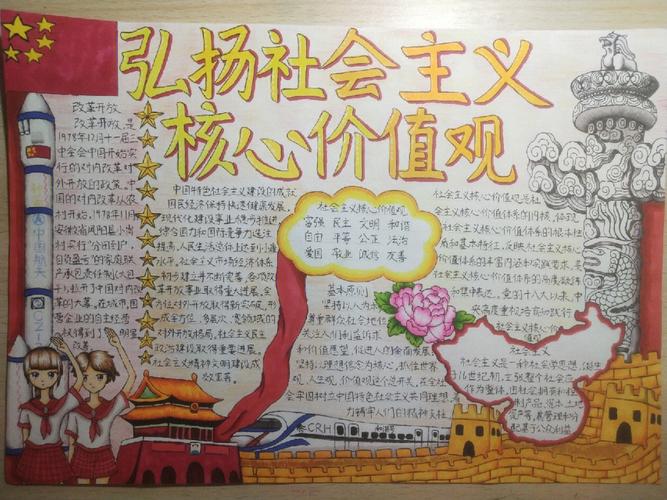 弘扬社会主义
核心价值观
改革开放
改革开放，是
1978年12月十一届三
中全会中国开始实
行的对内改革对
外开放的政策。中
国的对内改革从农
村开始，1978年11月
安徽省凤阳县小岗
村实行"分田到户，
自负盈亏"的家庭联
产承包责任制(大包
干)，拉开了中国对内改
革的大幕。在城市，国
营企业的自主经营
权得到了明显
改善。
中国航天
中国特色社会主义建设的成就
国民经济保持快速健康发展，
现代化建设事业顺利推进
综合国力和国际竞争力
提高，人民生活总体上达到小康
水平。社会主义市场经济体系
初步建立并不断完善，各项改
革开放事业取得重大进展。全
方位对外开放取得新突破，形
成全方位、多层次、宽领域的
对外开放格局。社会主义民主
政治建设取得重要进展。
社会主义精神文明建设成
效显著。
社会主义核心价值观
富强 民主 文明 和谐
自由 平等 公正 法治
爱国 敬业 诚信 友善
基本原则
坚持以人为本
尊重群众主体地位
关注人们利益诉求
和价值愿望，促进人的全面发展
坚持以理想信念为核心，抓住世界
观、人生观、价值观这个总开关，在全社
会牢固树立中国特色社会主义共同理想，着
力铸牢人们的精神支柱
社会主义核心价值观是社
会主义核心价值体系的内核，体现
社会主义核心价值体系的根本性
质和基本特征，反映社会主义核心
价值体系的丰富内涵和实践要求，是
社会主义核心价值体系的高度凝练
和集中表达。党的十八大以来，中
央高度重视培育和践行
社会主义核心价值
观
社会主义
社会主义是一种社会学思想，诞生
于16世纪初，主张整个社会应
作为整体，由社会拥有和控
制产品、资本、土地、
资产等，其管理和分
配基于公众利益
CRH 和谐号